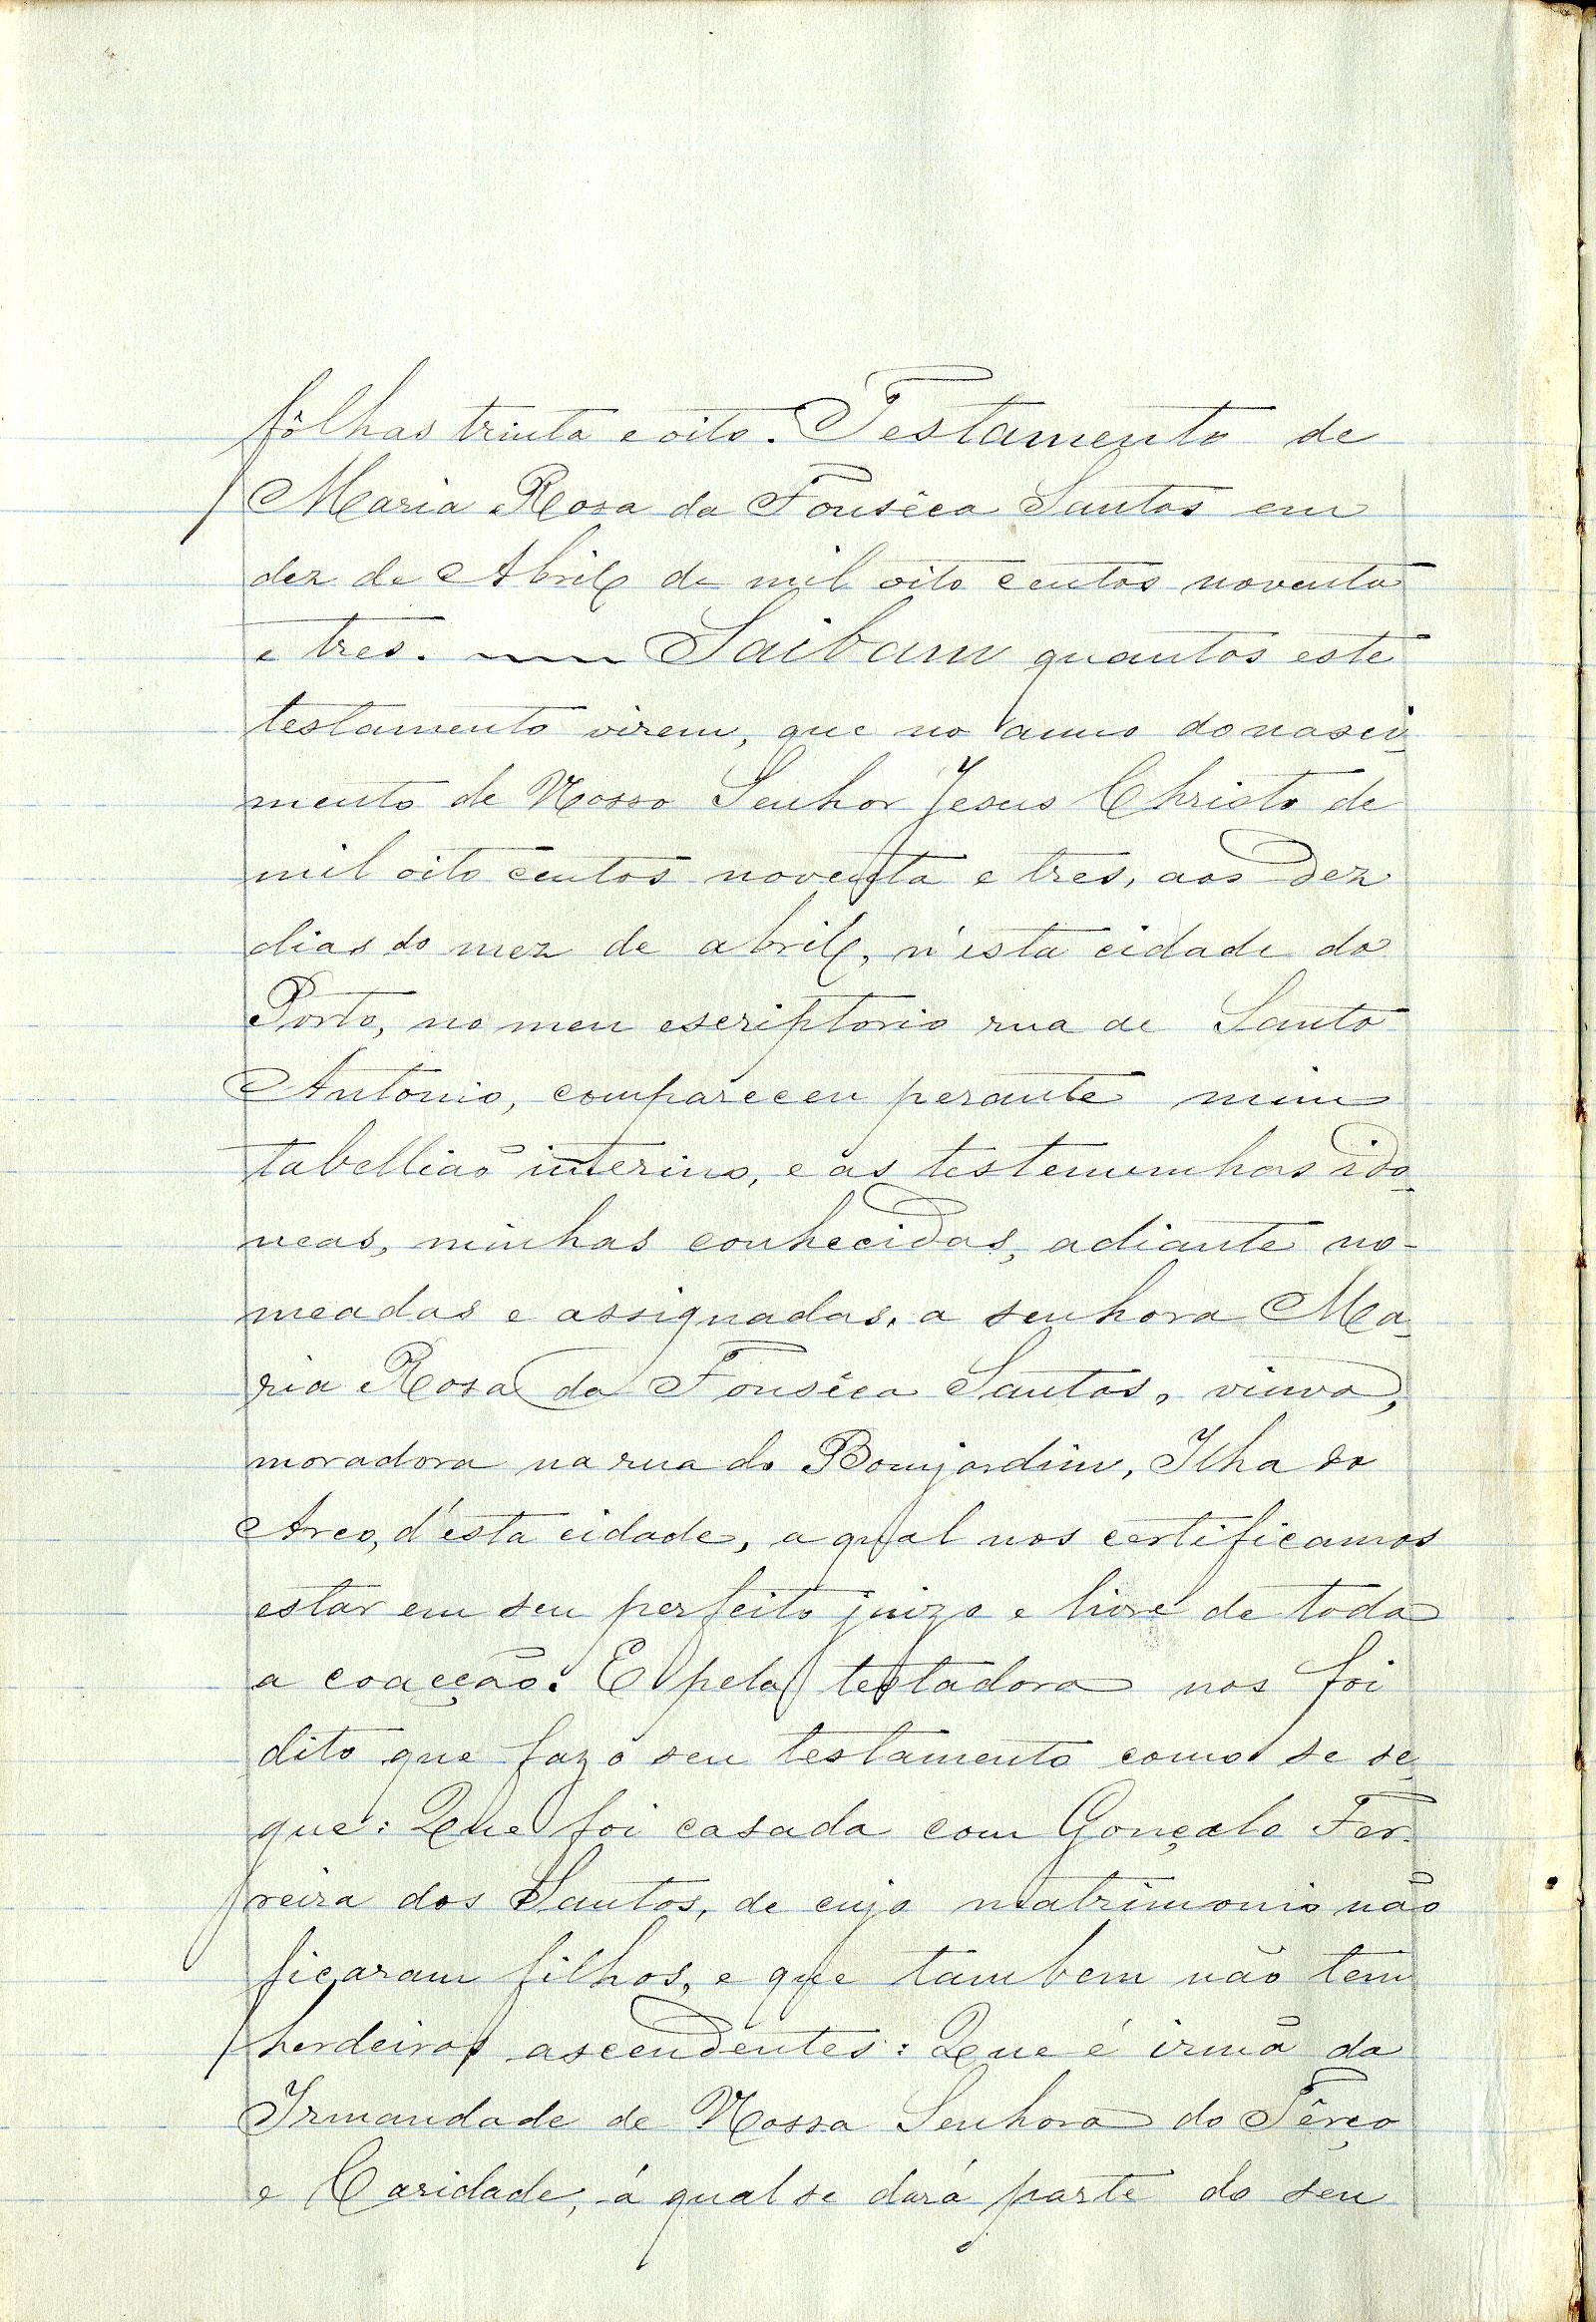 fôlhas trinta e oito. Testamento de
Maria Rosa da Fonsêca Santos em
dez de Abril de mil oito centos noventa
e tres. Saibam quantos este
testamento virem, que no anno do nasci-
mento de Nosso Senhor Jesus Christo de
mil oito centos noventa e tres, aos dez
dias do mez de abril, n'esta cidade do
Porto, no meu escriptorio rua de Santo
Antonio, compareceu perante mim
tabellião interino, e as testemunhas ido-
neas, minhas conhecidas, adiante no-
meadas e assignadas, a senhora Ma-
ria Rosa da Fonsêca Santos, viuva,
moradora na rua do Bomjardim, Ilha do
Arco, d'esta cidade, a qual nos certificamos
estar em seu perfeito juizo e livre de toda
a coacção. E pela testadora nos foi
dito que faz o seu testamento como se se-
gue: Que foi casada com Gonçalo Fer-
reira dos Santos, de cujo matrimonio não
ficaram filhos, e que tambem não tem
herdeiros ascendentes: Que é irmã da
Irmandade de Nossa Senhora do Têrço
e Caridade, á qual se dará parte do seu